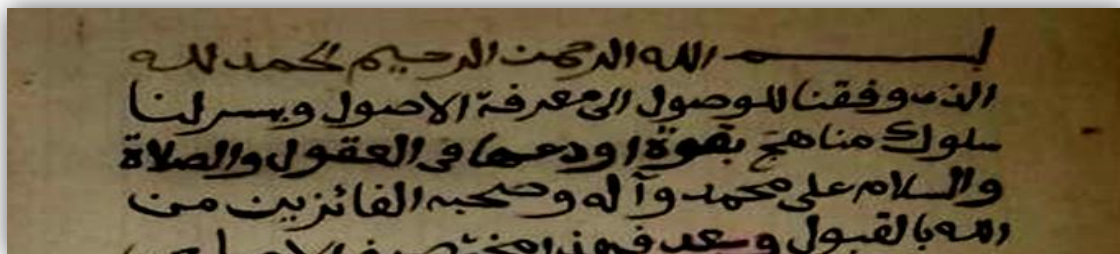 بسم الله الرحمن الرحيم الحمد لله
الذى وفقنا للوصول الى معرفة الاصول ويسر لنا
سلوك مناهج بقوة اودعها فى العقول والصلاة
والسلام على محمد وآله وصحبه الفائزين من
الله بالقبول وبعد فهذا مختصر فى